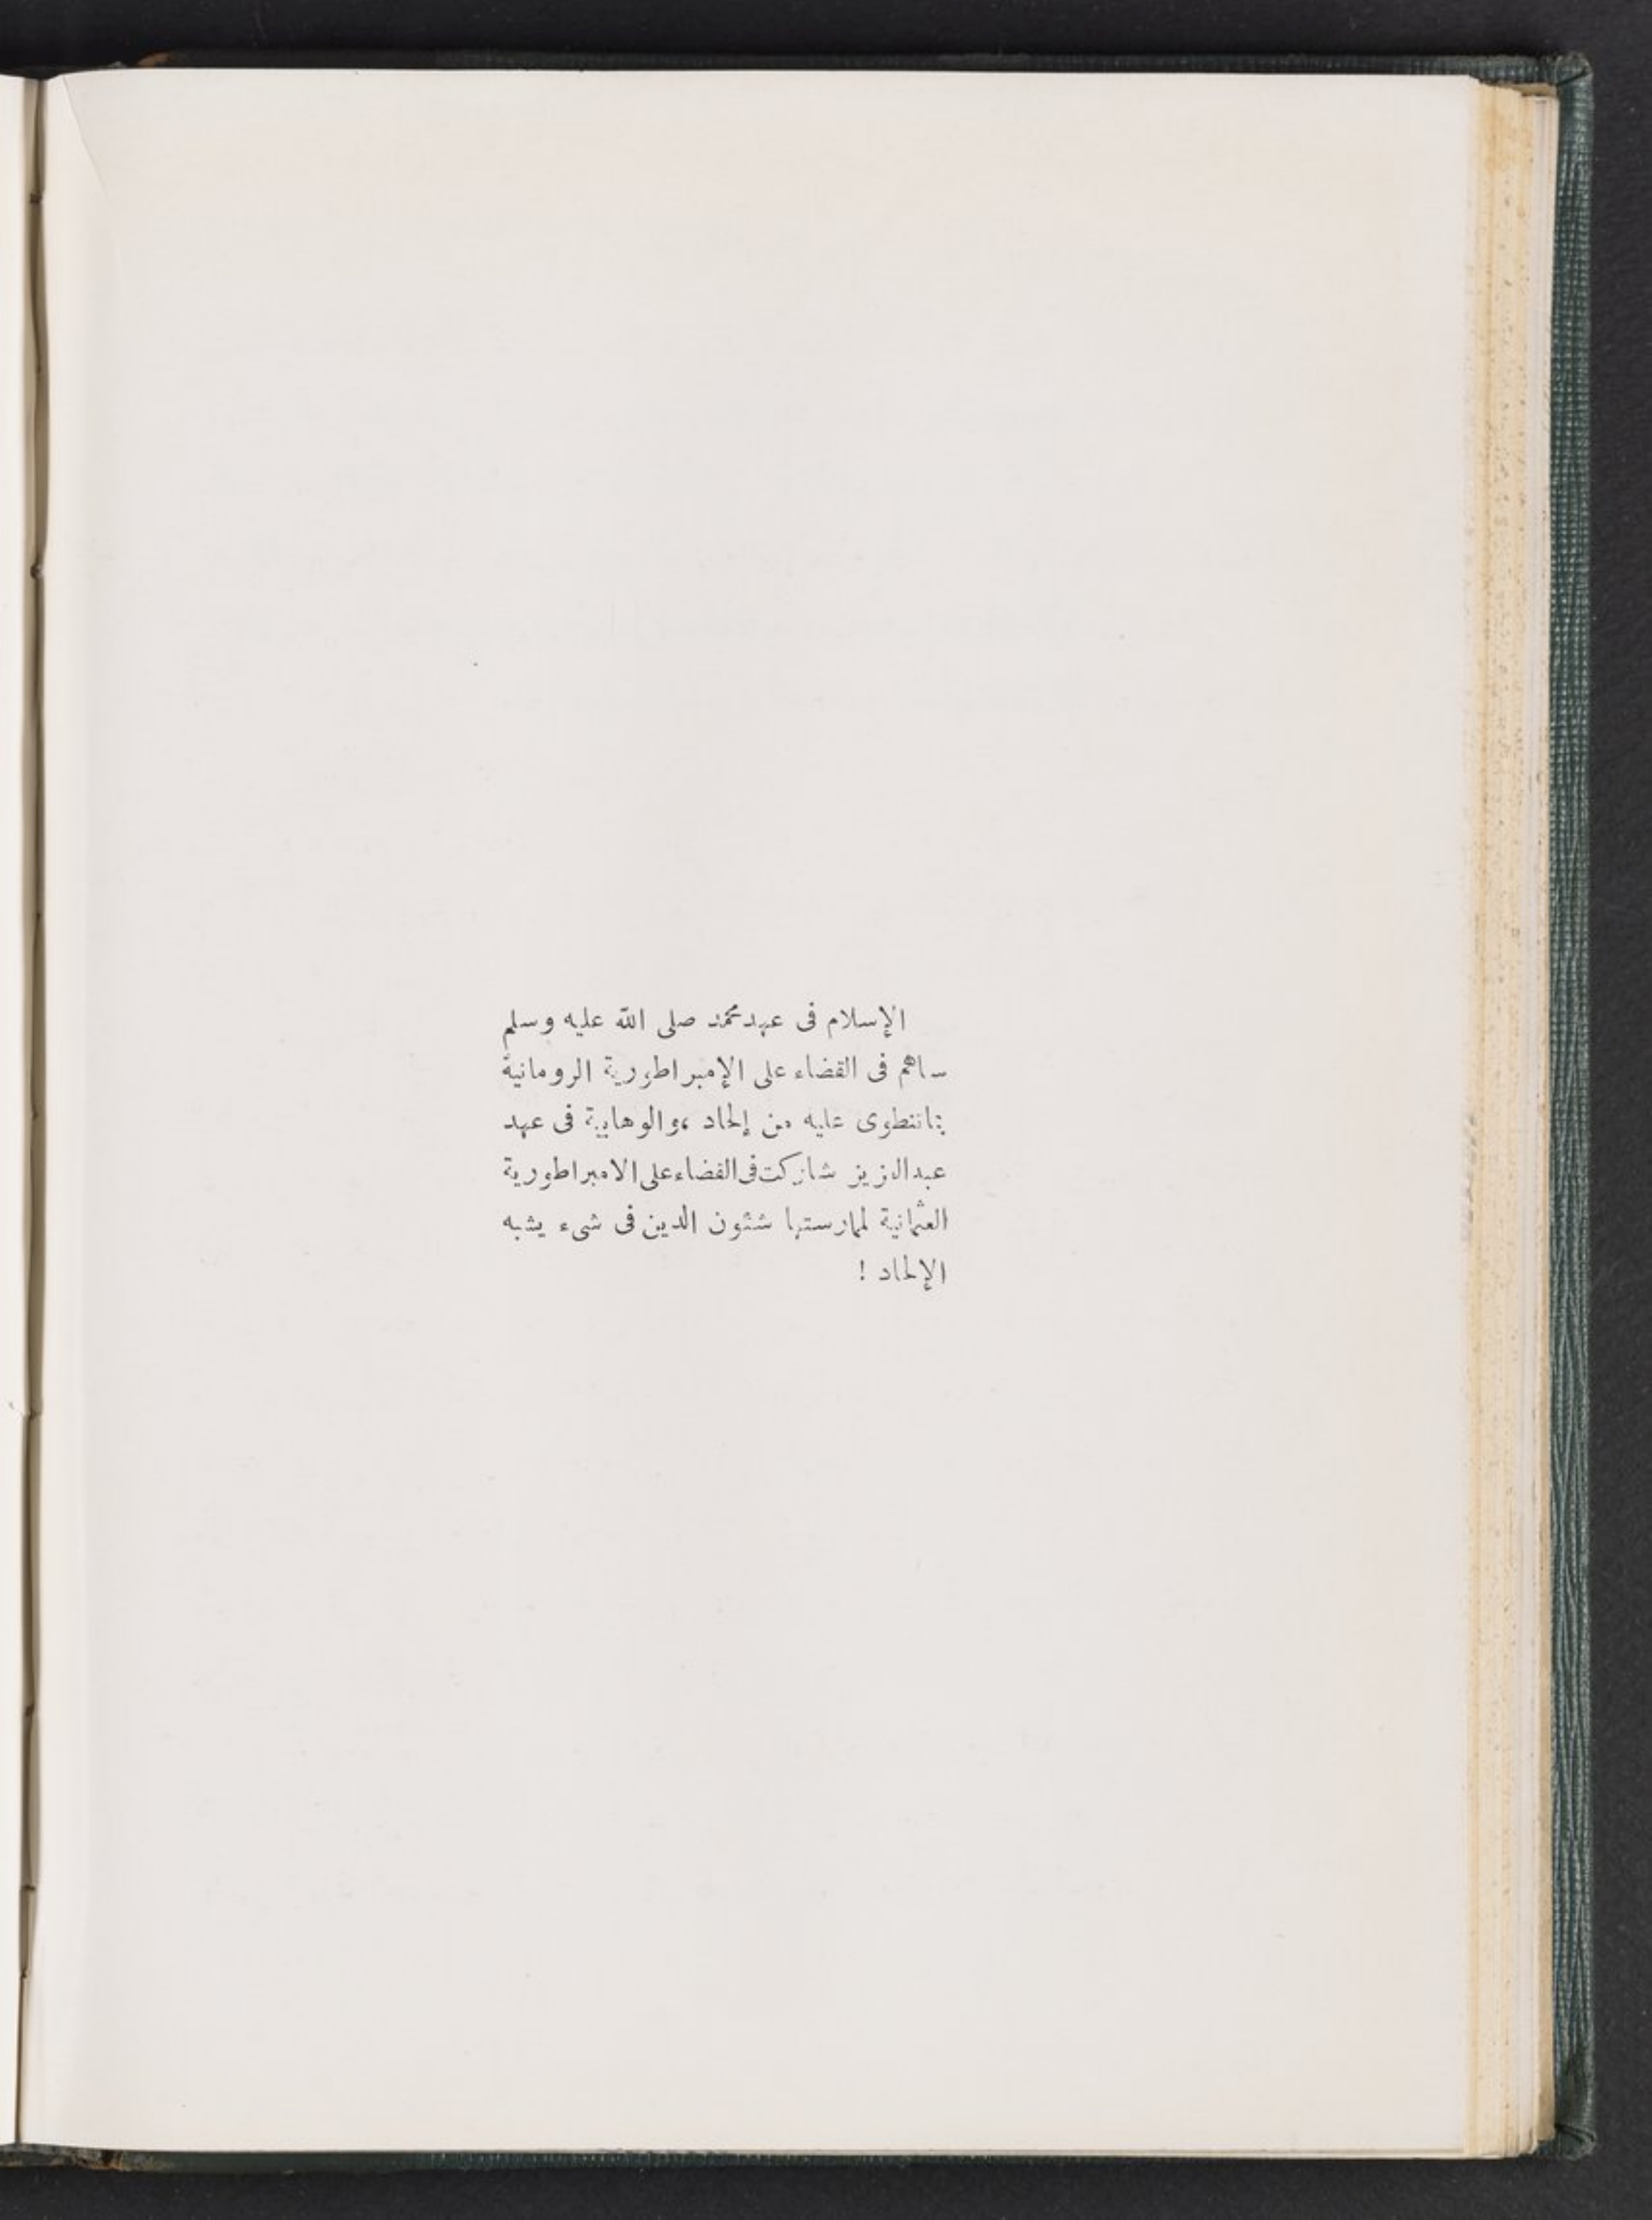 الإسلام فى عهد محمد صلى الله عليه وسلم
ساهم فى القضاء على الإمبراطورية الرومانية
بما تنطوى عليه من إلحاد ، والوهابية فى عهد
عبد العزيز شاركت فى القضاء على الامبراطورية
العثمانية لممارستها شئون الدين فى شىء يشبه
الإلحاد !